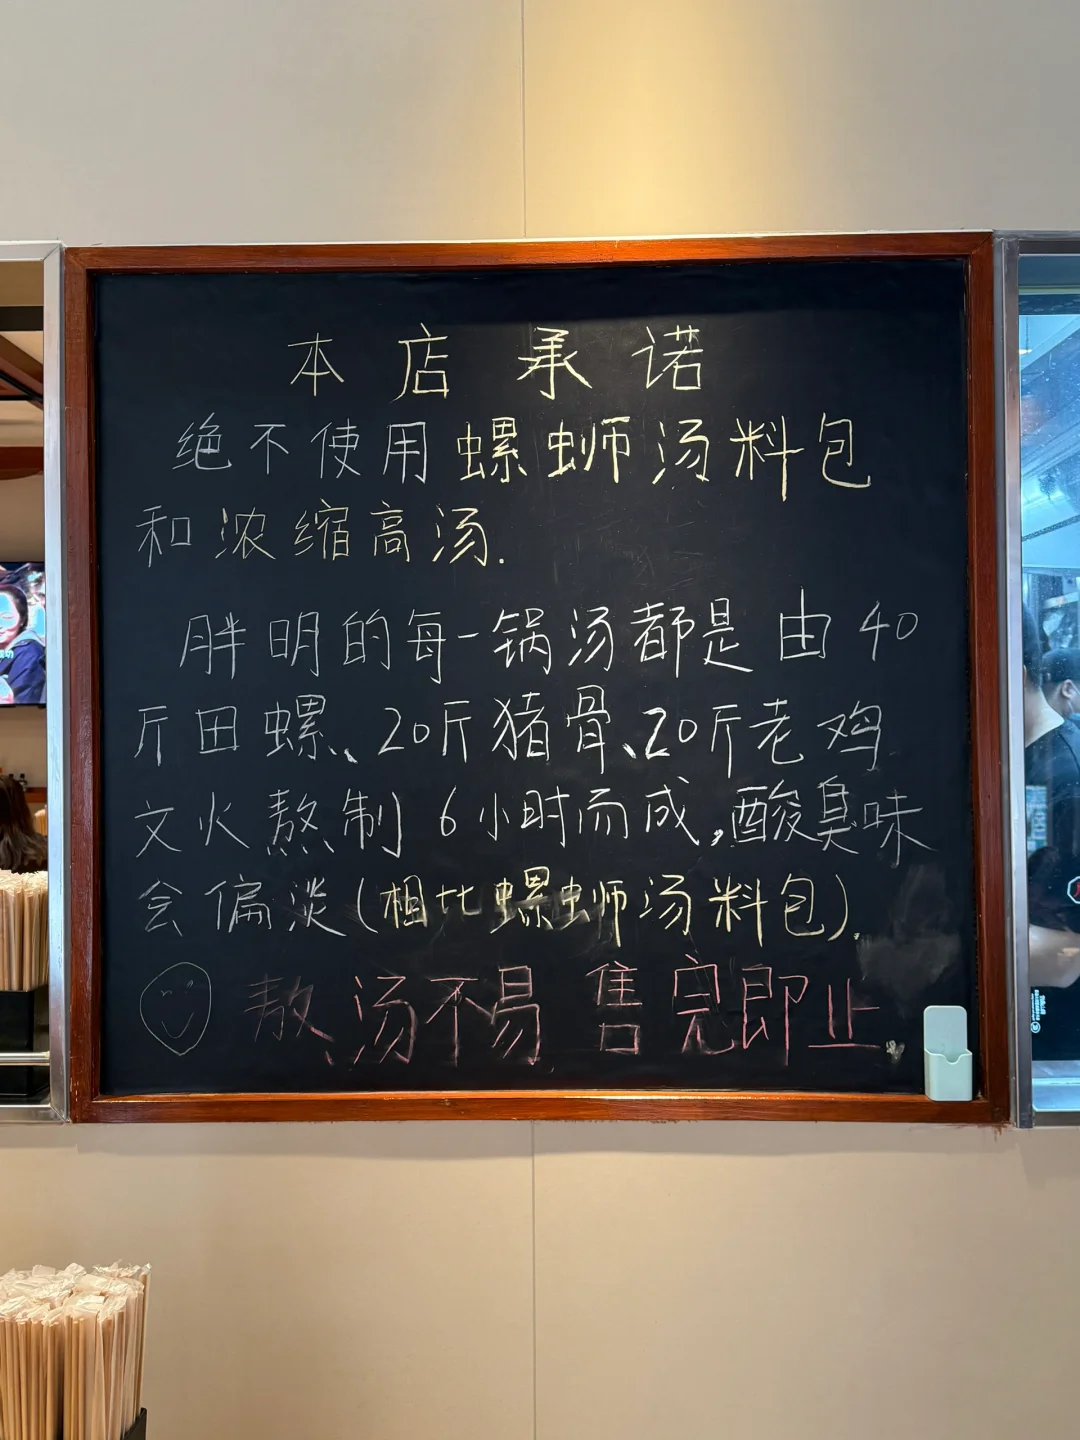 本店承诺
绝不使用螺蛳汤料包
和浓缩高汤.
胖明的每一锅汤都是由40
斤田螺、20斤猪骨、20斤老鸡
文火熬制6小时而成,酸臭味
会偏淡(相比螺蛳汤料包).
熬汤不易 售完即止.